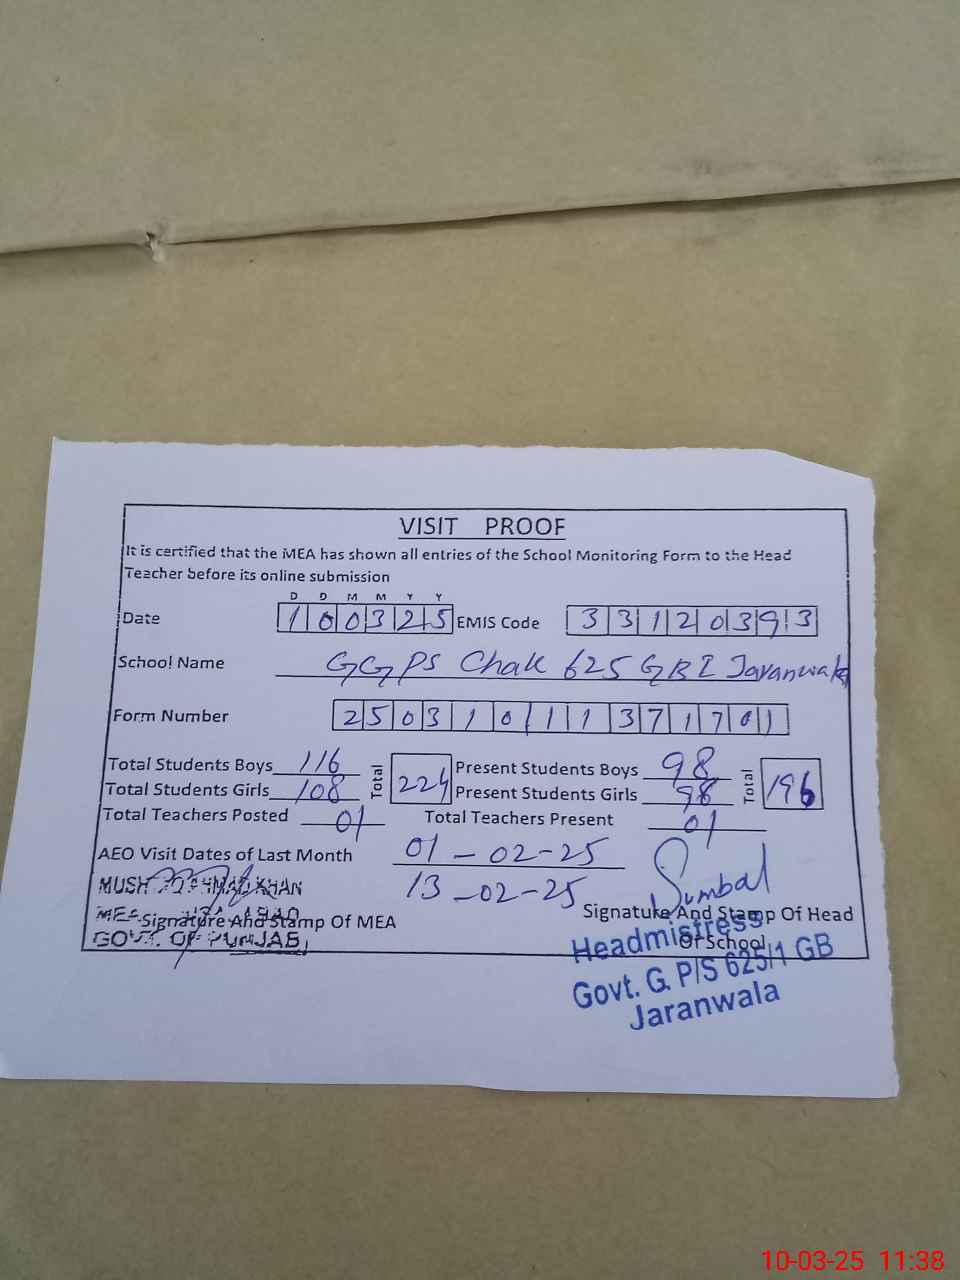 VISIT PROOF
It is certified that the MEA has shown all entries of the School Monitoring Form to the Head
Teacher before its online submission
D D M M Y Y
Date 100325 EMIS Code 33120393
School Name GGPS Chak 625 GB I Jaranwala
Form Number 250310111371701
Total Students Boys 116 Total 224 Present Students Boys 98 Total 196
Total Students Girls 108 Present Students Girls 98
Total Teachers Posted 01 Total Teachers Present 01
AEO Visit Dates of Last Month 01-02-25
13-02-25
Sumbal
KHAN
MEA
Signature And Stamp Of MEA
GOVT. OF PUNJAB
Signature And Stamp Of Head
Of School
Headmistress
Govt. G. P/S 625/1 GB
Jaranwala
10-03-25 11:38